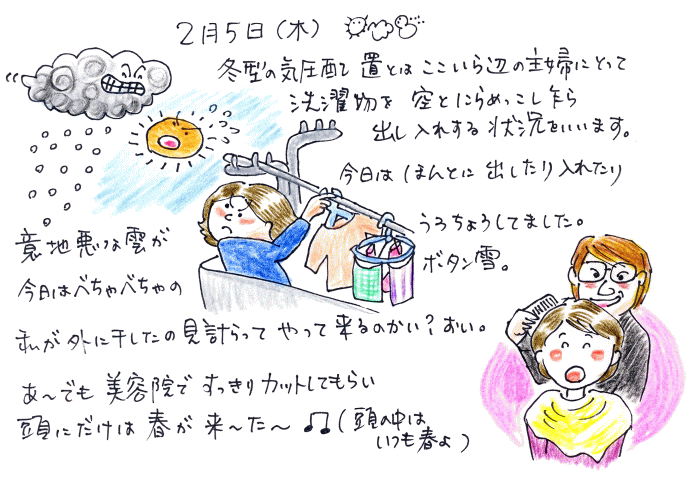 2月5日（木）
冬型の気圧配置とはここいら辺の主婦にとって
洗濯物を空とにらめっこしながら
出し入れする状況をいいます。
今日はほんとに出したり入れたり
うろちょろしてました。
意地悪な雲が
今日はべちゃべちゃの
ボタン雪。
私が外に干したの見計らってやって来るのかい？おい。
あ〜でも美容院ですっきりカットしてもらい
頭にだけは春が来〜た〜♫（頭の中は
いつも春よ）